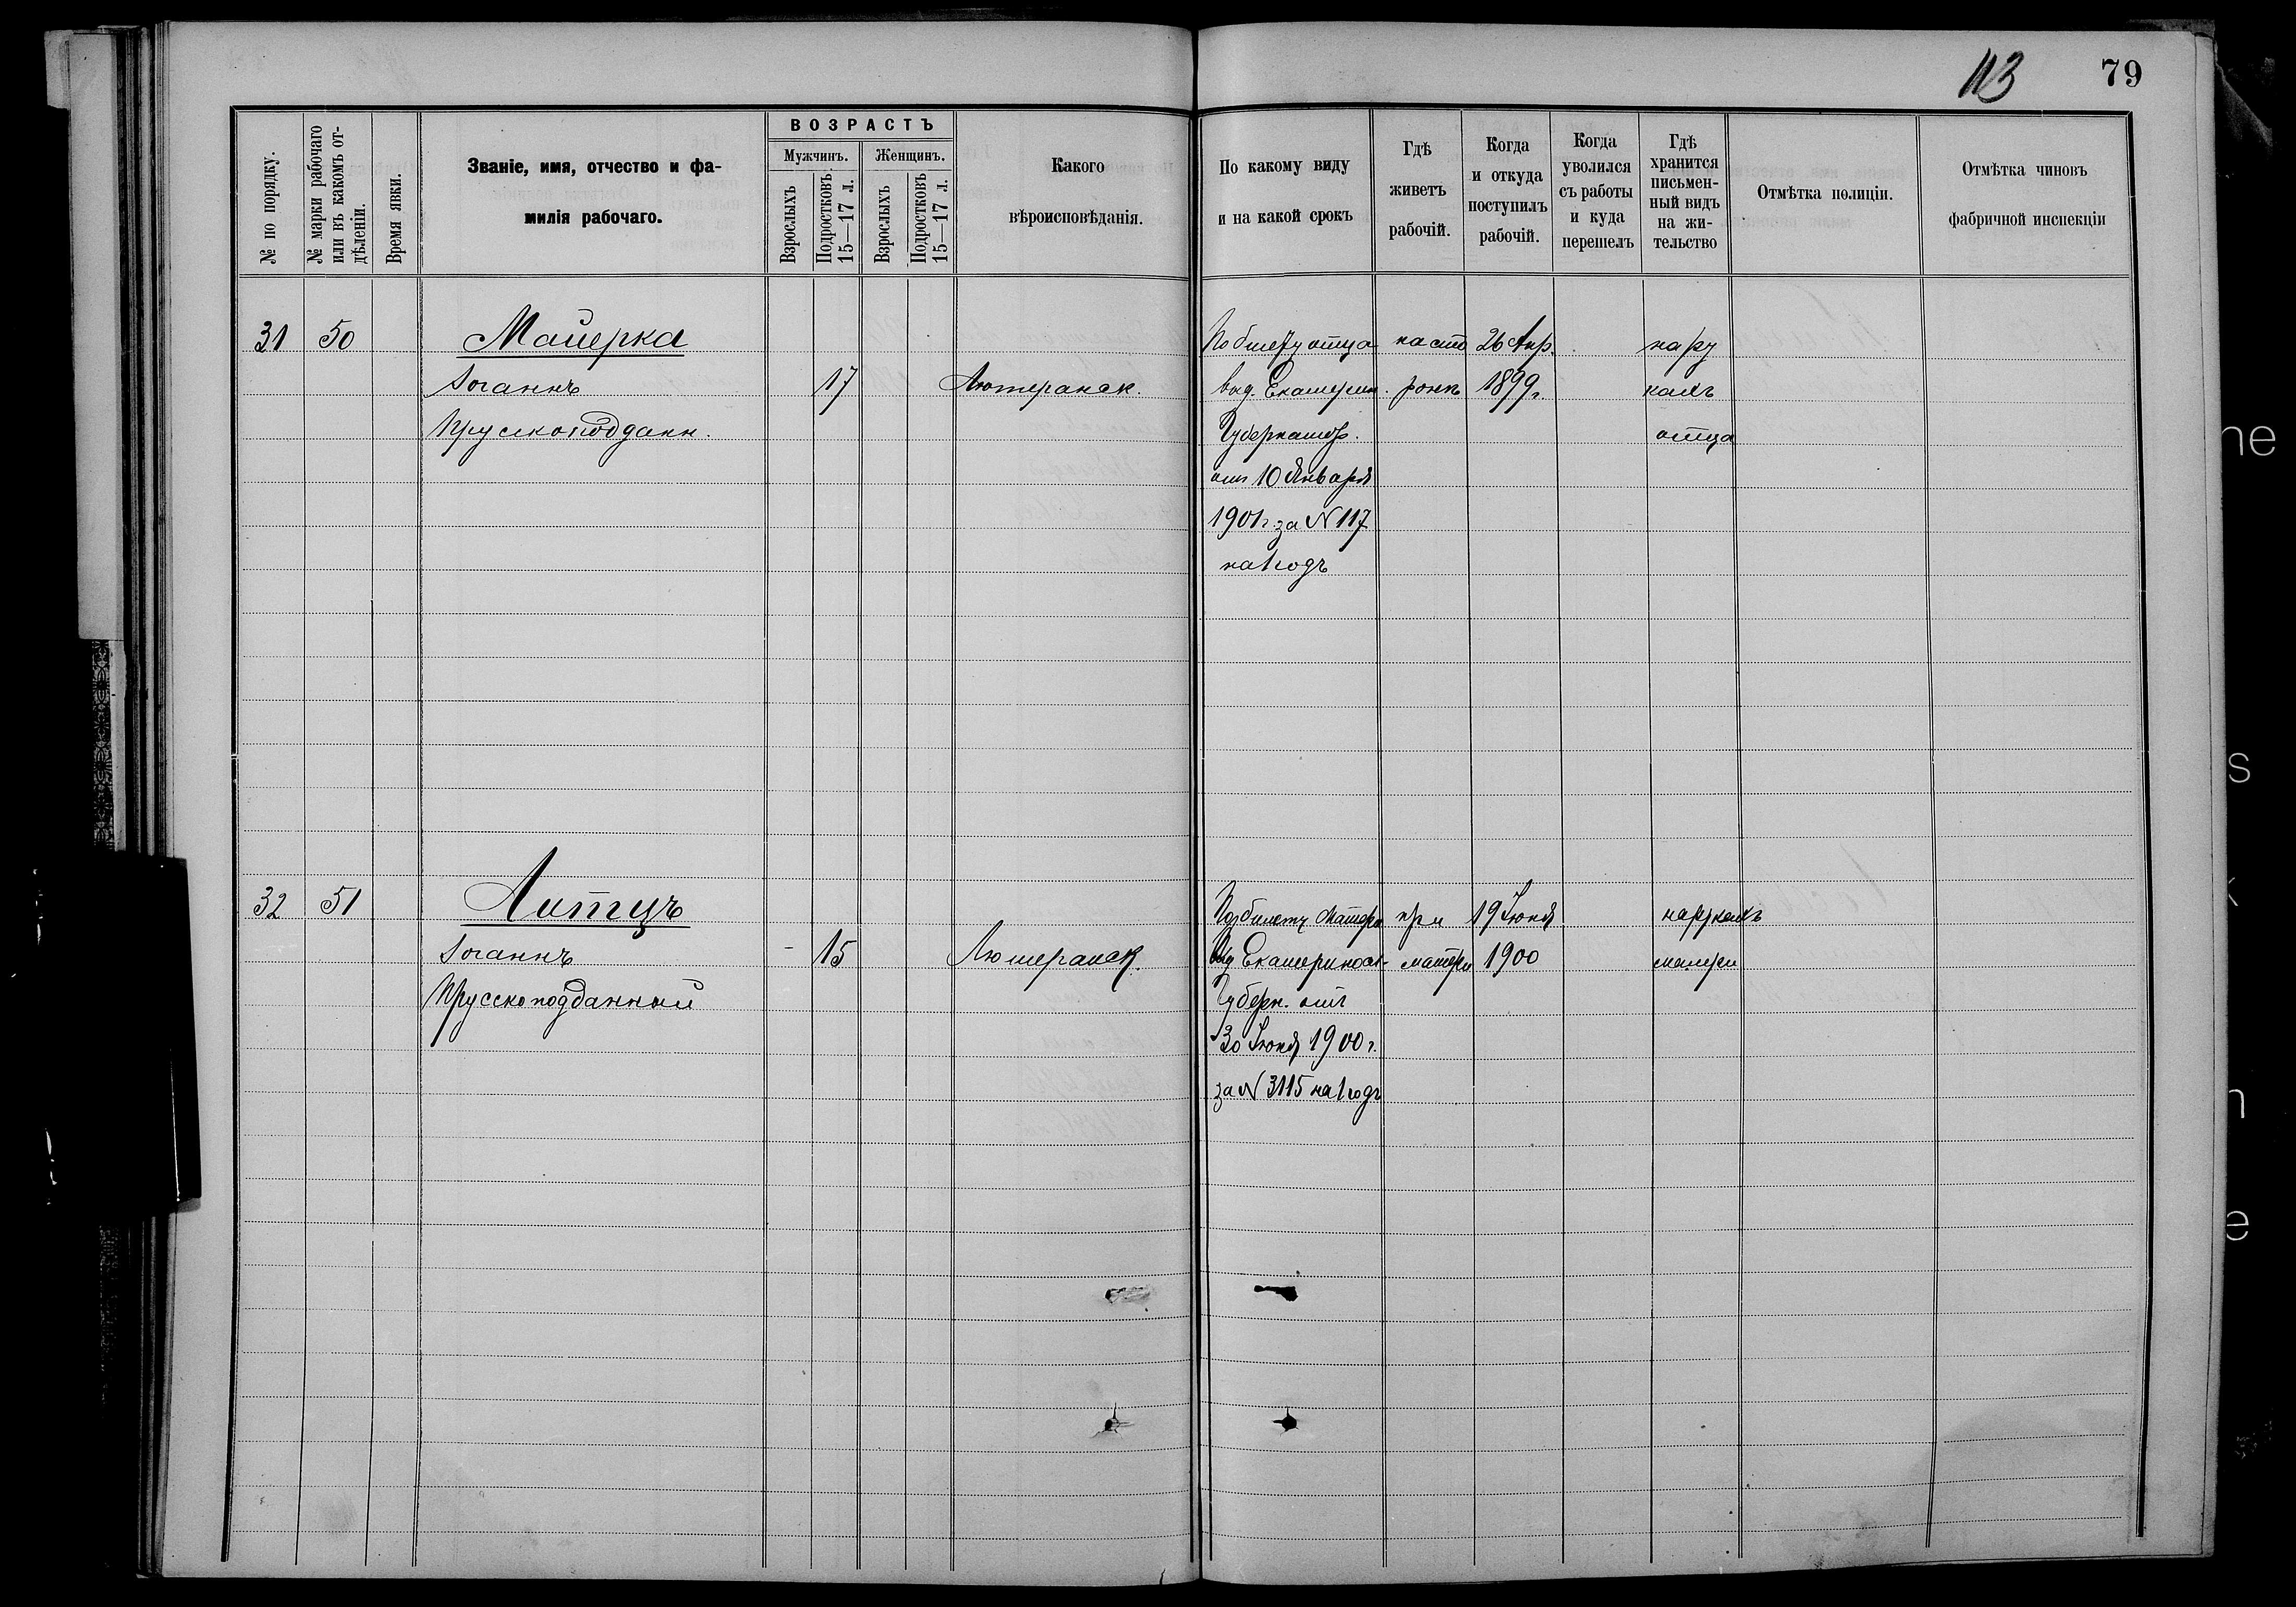 113
79
№ по порядку.
№ марки рабочаго
или въ какомъ от-
дѣленіи.
Время явки.
Званіе, имя, отчество и фа-
милія рабочаго.
ВОЗРАСТЪ
Мужчинъ.
Женщинъ.
Взрослыхъ
Подростковъ
15—17 л.
Взрослыхъ
Подростковъ
15—17 л.
Какого
вѣроисповѣданія.
По какому виду
и на какой срокъ
Гдѣ
живетъ
рабочій.
Когда
и откуда
поступилъ
рабочій.
Когда
уволился
съ работы
и куда
перешелъ
Гдѣ
хранится
письмен-
ный видъ
на жи-
тельство
Отмѣтка полиціи.
Отмѣтка чиновъ
фабричной инспекціи
31 50 Маиерка По билету отца на сто 26 Апр. на ру
Іоганнъ 17 Лютеранск. выд. Екатерин. ронѣ 1899 г. кахъ
Прусскоподданн. Губернатор. отца
отъ 10 Января
1901 г. за N 117
на 1 годъ
32 51 Литцъ По билету матери при 19 Іюня на рукахъ
Іоганнъ 15 Лютеранск. выд Екатеринос. матери 1900 матери
Прусскоподданный Губерн. отъ
30 Іюня 1900 г.
за N 3115 на 1 годъ
ne
s
n
e